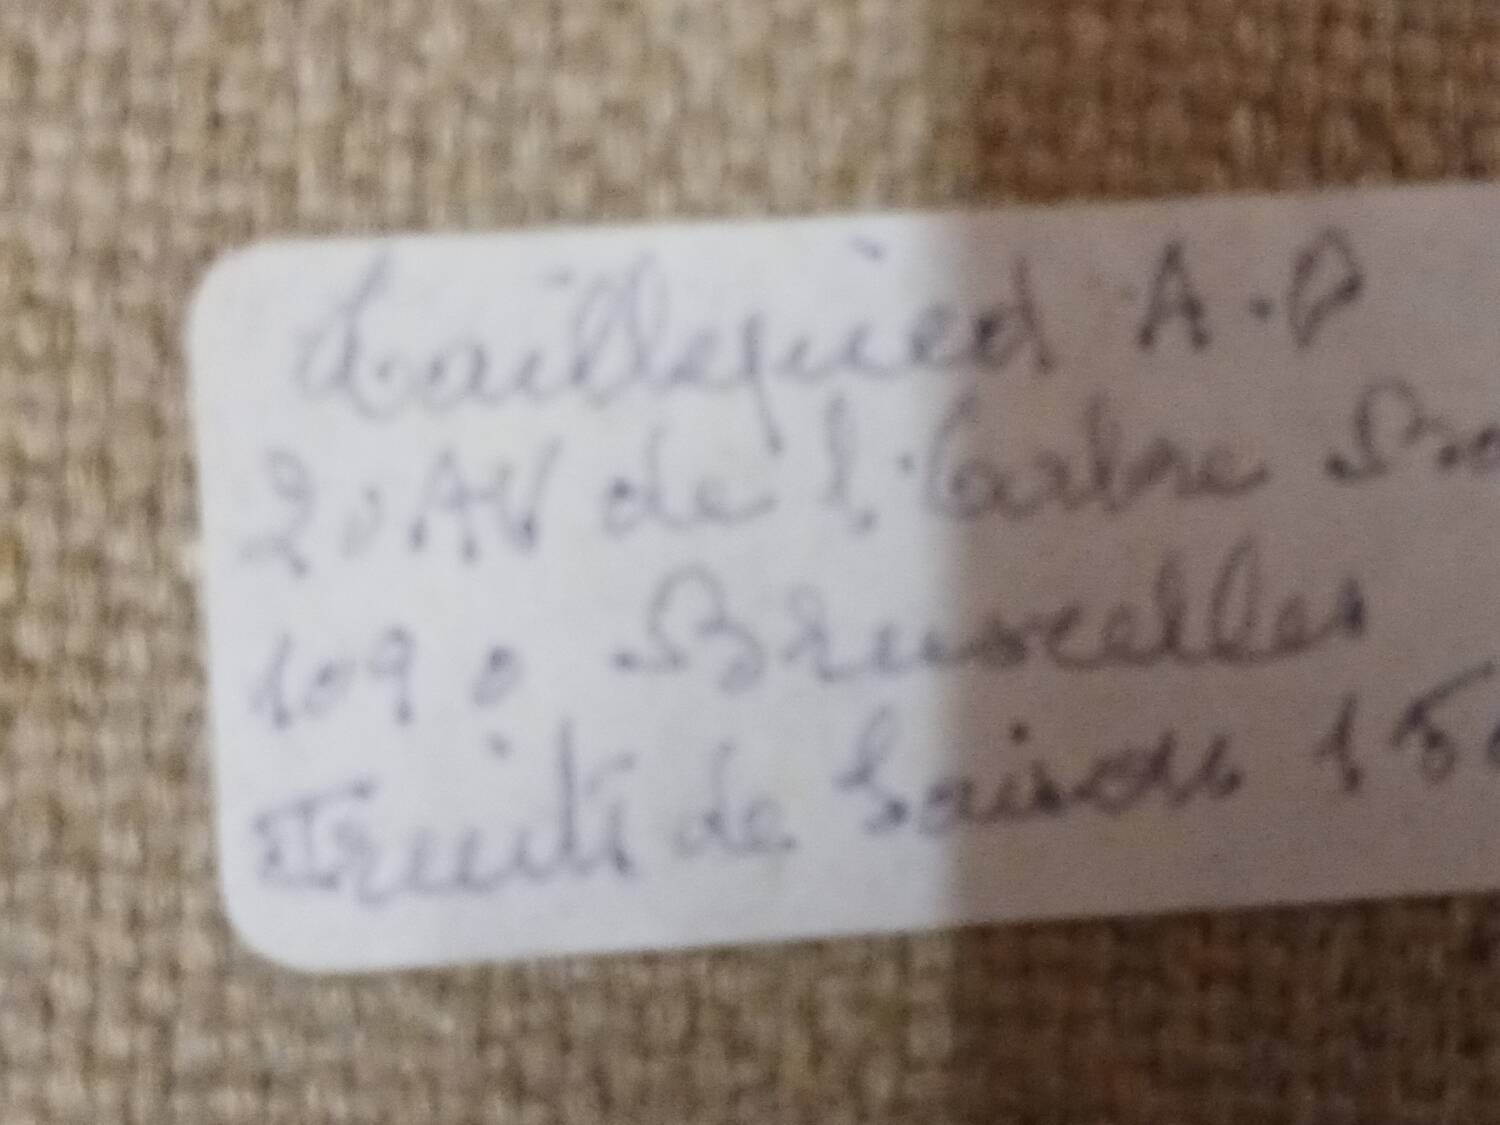 Taillepied A.P
20 AV de l'Arbre
1090 Bruxelles
Fruits de Saison 15